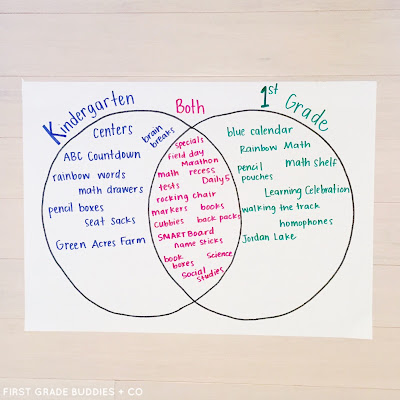 Kindergarten
Both
1st Grade
Centers
brain
breaks
ABC Countdown
rainbow words
math drawers
pencil boxes
seat sacks
Green Acres Farm
specials
field day
Marathon
math recess
tests Daily 5
rocking chair
markers books
cubbies back packs
SMARTBoard
name sticks
book
boxes
Science
Social
studies
blue calendar
Rainbow Math
pencil
pouches
math shelf
Learning Celebration
walking the track
homophones
Jordan Lake
FIRST GRADE BUDDIES + CO